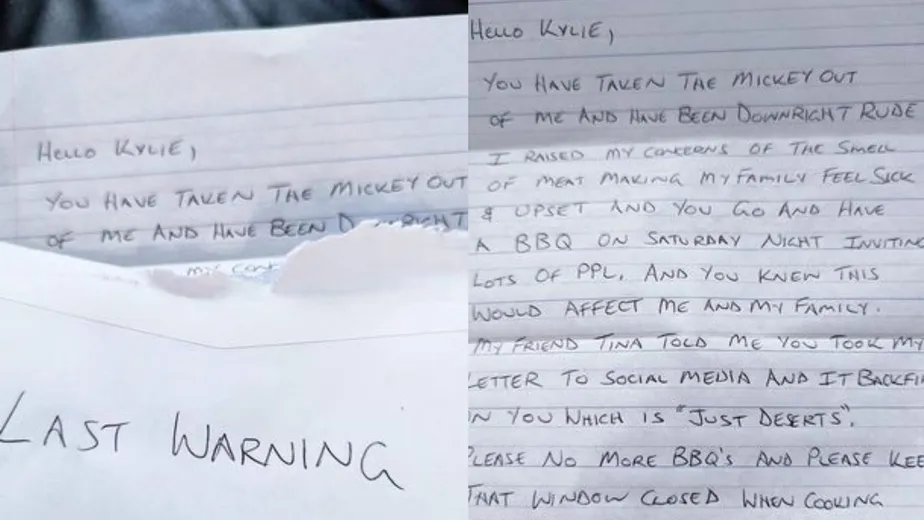 Hello KYLIE,
YOU HAVE TAKEN THE MICKEY OUT
OF ME AND HAVE BEEN DOWNRIGHT
my
LAST WARNING
Hello KYLIE,
YOU HAVE TAKEN THE MICKEY OUT
OF ME AND HAVE BEEN DOWNRIGHT RUDE
I RAISED MY CONCERNS OF THE SMELL
OF MEAT MAKING MY FAMILY FEEL SICK
& UPSET AND YOU GO AND HAVE
A BBQ ON SATURDAY NIGHT INVITING
LOTS OF PPL. AND YOU KNEW THIS
WOULD AFFECT ME AND MY FAMILY.
MY FRIEND TINA TOLD ME YOU TOOK MY
LETTER TO SOCIAL MEDIA AND IT
YOU WHICH IS "JUST DESERTS".
PLEASE NO MORE BBQ'S AND PLEASE
THAT WINDOW CLOSED WHEN COOKING